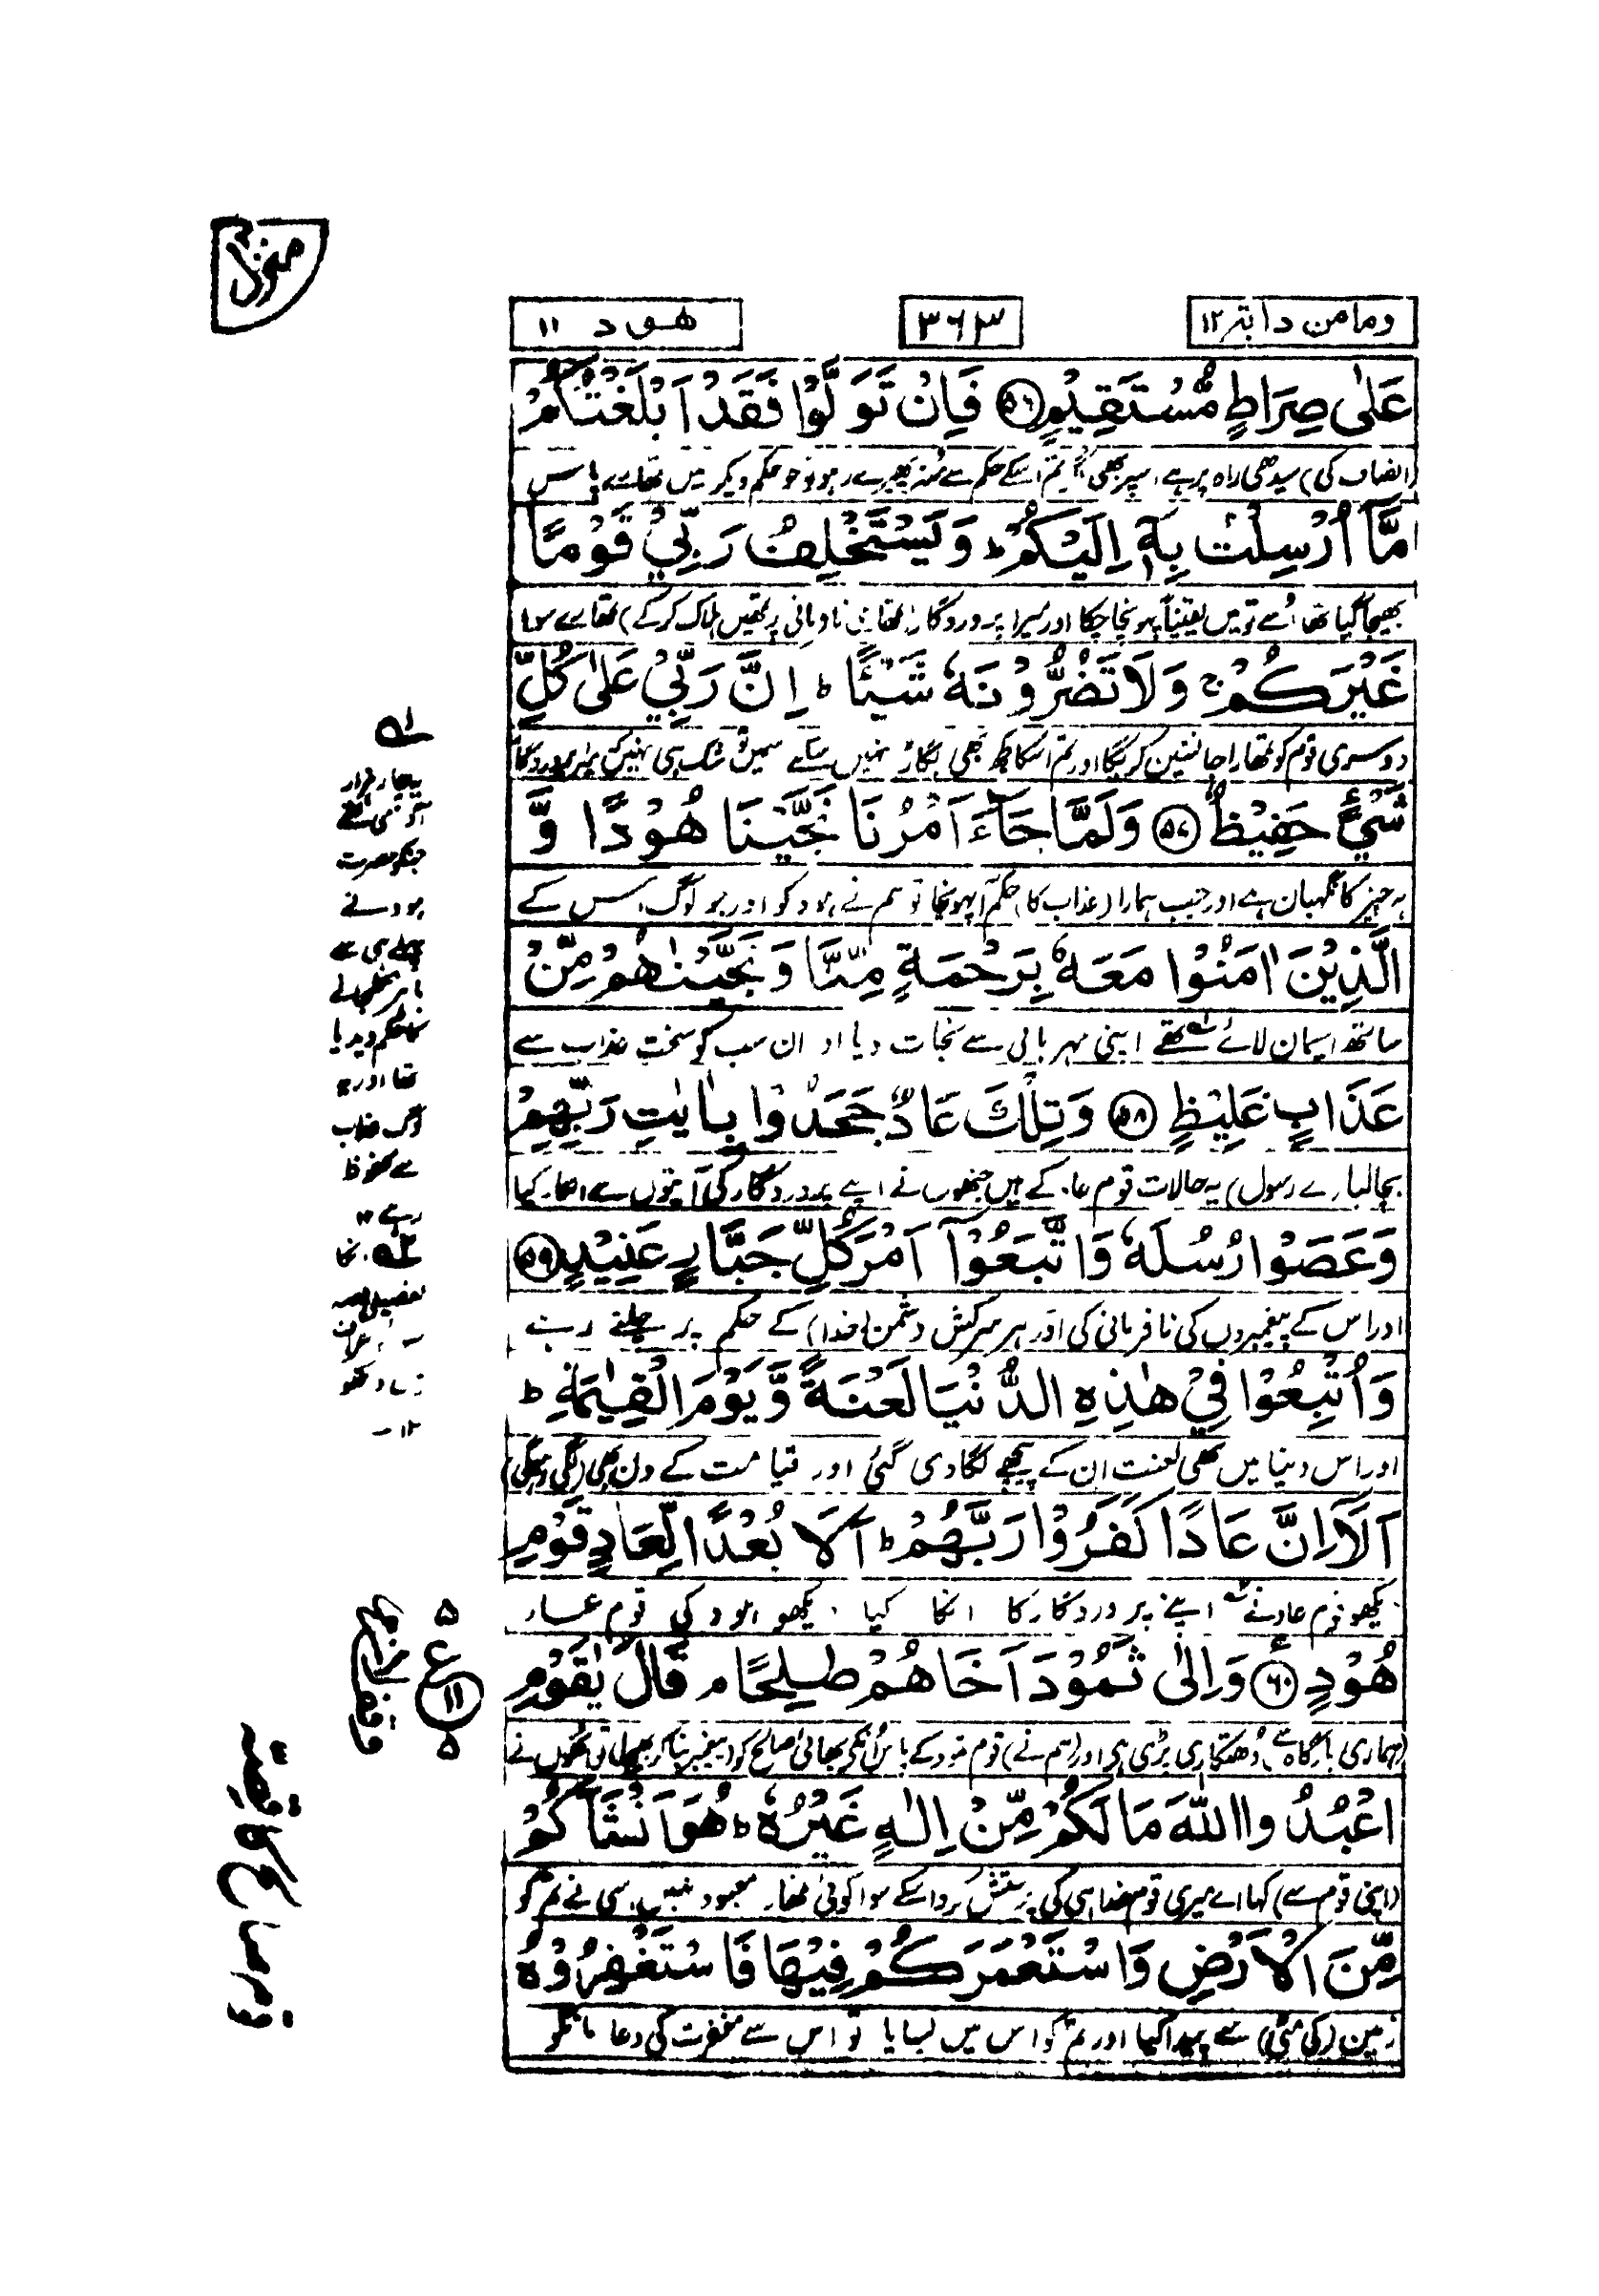 منزل
ومامن دابۃ ١٢
٣٦٣
هود ١١
عَلٰى صِرَاطٍ مُّسْتَقِيْمٍ ﴿٥٦﴾ فَاِنْ تَوَلَّوْا فَقَدْ اَبْلَغْتُكُمْ
(انصاف کی) سیدھی راہ پر ہے اسپر بھی اگر تم اسکے حکم سے منہ پھیرے رہو تو جو حکم دیکر میں تمھارے پاس
مَّآ اُرْسِلْتُ بِهٖٓ اِلَيْكُمْ ؕ وَيَسْتَخْلِفُ رَبِّيْ قَوْمًا
بھیجا گیا تھا اُسے تو میں یقیناً پہونچا چکا اور میرا پروردگار (تمھاری نافرمانی پر تمھیں ہلاک کر کے) تمھارے سوا
غَيْرَكُمْ ۚ وَلَا تَضُرُّوْنَهٗ شَيْئًا ؕ اِنَّ رَبِّيْ عَلٰى كُلِّ
دوسری قوم کو تمھارا جانشین کریگا اور تم اسکا کچھ بھی بگاڑ نہیں سکتے اسمیں تو شک ہی نہیں کہ میرا پروردگار
شَيْءٍ حَفِيْظٌ ﴿٥٧﴾ وَلَمَّا جَآءَ اَمْرُنَا نَجَّيْنَا هُوْدًا وَّ
ہر چیز کا نگہبان ہے اور جب ہمارا (عذاب کا) حکم آ پہونچا تو ہم نے ہود کو اور جو لوگ اس کے
الَّذِيْنَ اٰمَنُوْا مَعَهٗ بِرَحْمَةٍ مِّنَّا ۚ وَنَجَّيْنٰهُمْ مِّنْ
ساتھ ایمان لائے تھے اپنی مہربانی سے نجات دیا اور ان سب کو سخت عذاب سے
عَذَابٍ غَلِيْظٍ ﴿٥٨﴾ وَتِلْكَ عَادٌ جَحَدُوْا بِاٰيٰتِ رَبِّهِمْ
بچا لیا (اے رسول) یہ حالات قوم عاد کے ہیں جنھوں نے اپنے پروردگار کی آیتوں سے انکار کیا
وَعَصَوْا رُسُلَهٗ وَاتَّبَعُوْٓا اَمْرَ كُلِّ جَبَّارٍ عَنِيْدٍ ﴿٥٩﴾
اور اس کے پیغمبروں کی نافرمانی کی اور ہر سرکش دشمن (خدا) کے حکم پر چلتے رہے
وَاُتْبِعُوْا فِيْ هٰذِهِ الدُّنْيَا لَعْنَةً وَّيَوْمَ الْقِيٰمَةِ ؕ
اور اس دنیا میں بھی لعنت ان کے پیچھے لگا دی گئی اور قیامت کے دن بھی (لگی رہیگی)
اَلَآ اِنَّ عَادًا كَفَرُوْا رَبَّهُمْ ؕ اَلَا بُعْدًا لِّعَادٍ قَوْمِ
دیکھو قوم عاد نے اپنے پروردگار کا انکار کیا دیکھو ہود کی قوم عاد
هُوْدٍ ﴿٦٠﴾ وَاِلٰى ثَمُوْدَ اَخَاهُمْ صٰلِحًا ۘ قَالَ يٰقَوْمِ
(ہماری بارگاہ سے) دھتکاری پڑی ہی اور (ہم نے) قوم ثمود کے پاس اُنکے بھائی صالح کو (پیغمبر بنا کر بھیجا) تو انھوں نے
اعْبُدُوا اللّٰهَ مَا لَكُمْ مِّنْ اِلٰهٍ غَيْرُهٗ ؕ هُوَ اَنْشَاَكُمْ
(اپنی قوم سے) کہا اے میری قوم خدا ہی کی پرستش کرو اسکے سوا کوئی تمھارا معبود نہیں اسی نے تم کو
مِّنَ الْاَرْضِ وَاسْتَعْمَرَكُمْ فِيْهَا فَاسْتَغْفِرُوْهُ
زمین (کی مٹی) سے پیدا کیا اور تم کو اس میں بسایا تو اس سے مغفرت کی دعا مانگو
١
چار ہزار
آدمی تھے
جنکو حضرت
ہود نے
پہلے ہی سے
باہر نکل جانے
کا حکم دیدیا
تھا اور یہ
لوگ عذاب
سے محفوظ
رہے ١٢
٢
١٢
٥
ع
١١
٥
وقف لازم
قوم صالح کا قصہ